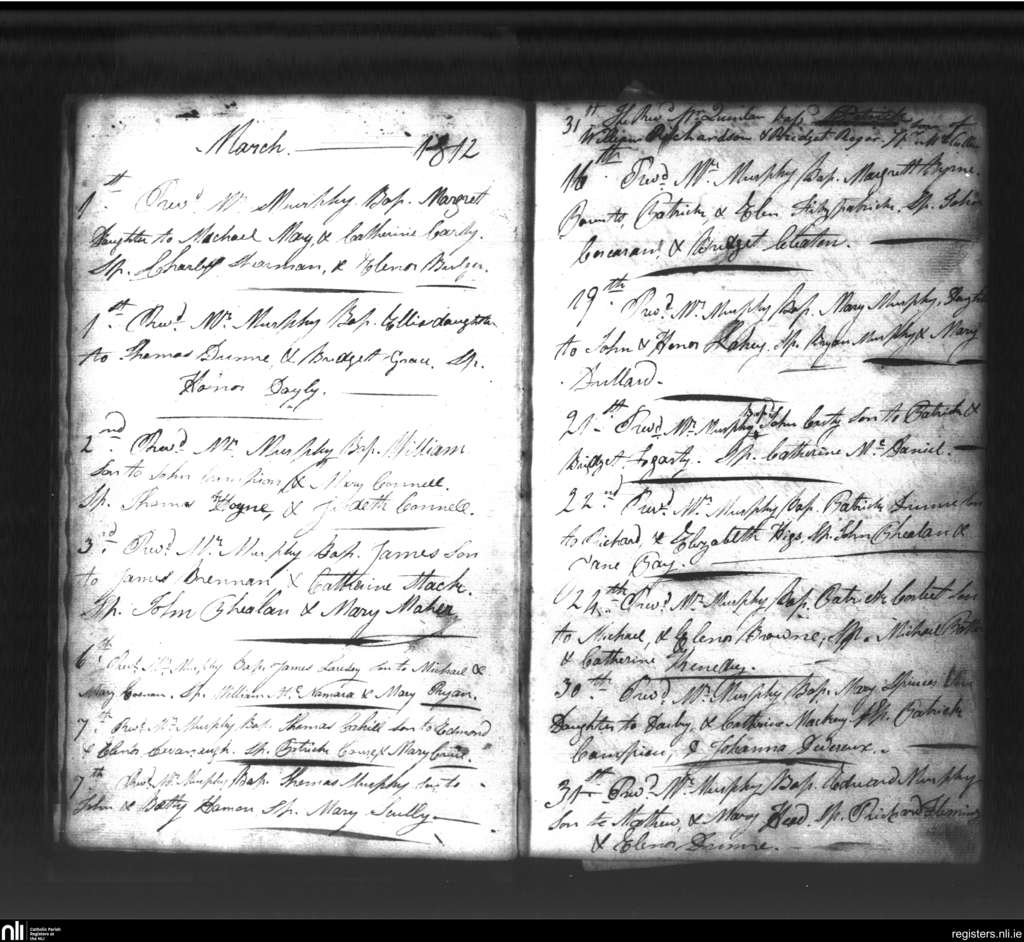 March. 1812
1st Revd. Mr. Murphy Bap. Margret
Daughter to Machael May, & Catherine Carty.
Sp. Charles Sherman, & Elenor Bulger.
1st Revd. Mr. Murphy Bap. Ellis daughter
to Thomas Dunne, & Bridgett Grace. Sp.
Honor Dayly.
2nd Revd. Mr. Murphy Bap. William
Son to John & Mary Connell.
Sp. Thomas Hoyne, & Judeth Connell.
3rd Revd. Mr. Murphy Bap. James Son
to James Brennan & Catherine Mack.
Sp. John Phealan & Mary Maher
6th Revd. Mr. Murphy Bap. James Son to Michael &
Mary Sp. William Mc Namara & Mary Ryan.
7th Revd. Mr. Murphy Bap. Thomas Cahill Son to Edmond
& Elenor Cavanaugh. Sp. Patrick & Mary
7th Revd. Mr. Murphy Bap. Thomas Murphy Son to
John & Betty Hamon Sp. Mary Scully
31st The Revd. Mr. Quinlan bap. Son of
William Richardson & Bridget
16th Revd. Mr. Murphy Bap. Margrett Byrne.
Parents, Patrick & Elen Fitzpatrick. Sp. John
Corcoran, & Bridget Cleaton.
19th Revd. Mr. Murphy Bap. Mary Murphy, Daughter
to John & Honor Sp. Ryan Murphy & Mary
Dullard.
21st Revd. Mr. Murphy Bapd. John Carty Son to Patrick &
Bridget Fogarty. Sp. Catherine Mc Daniel.
22nd Revd. Mr. Murphy Bap. Patrick Dunne Son
to Richard, & Elizabeth Higs, Sp. John Phealan &
Jane Bay.
24th Revd. Mr. Murphy Bap. Patrick Corbet Son
to Michael, & Elenor Browne, Sp. Michael
& Catherine Kenedey.
30th Revd. Mr. Murphy Bap. Mary
Daughter to Darby, & Catherine Mackey. Sp. Patrick
Campion, & Johanna Devereux.
31st Revd. Mr. Murphy Bap. Edward Murphy
Son to Mathew, & Mary Head. Sp. Richard Fleming
& Elenor Dunne.
nli Catholic Parish
Registers at
the NLI
registers.nli.ie